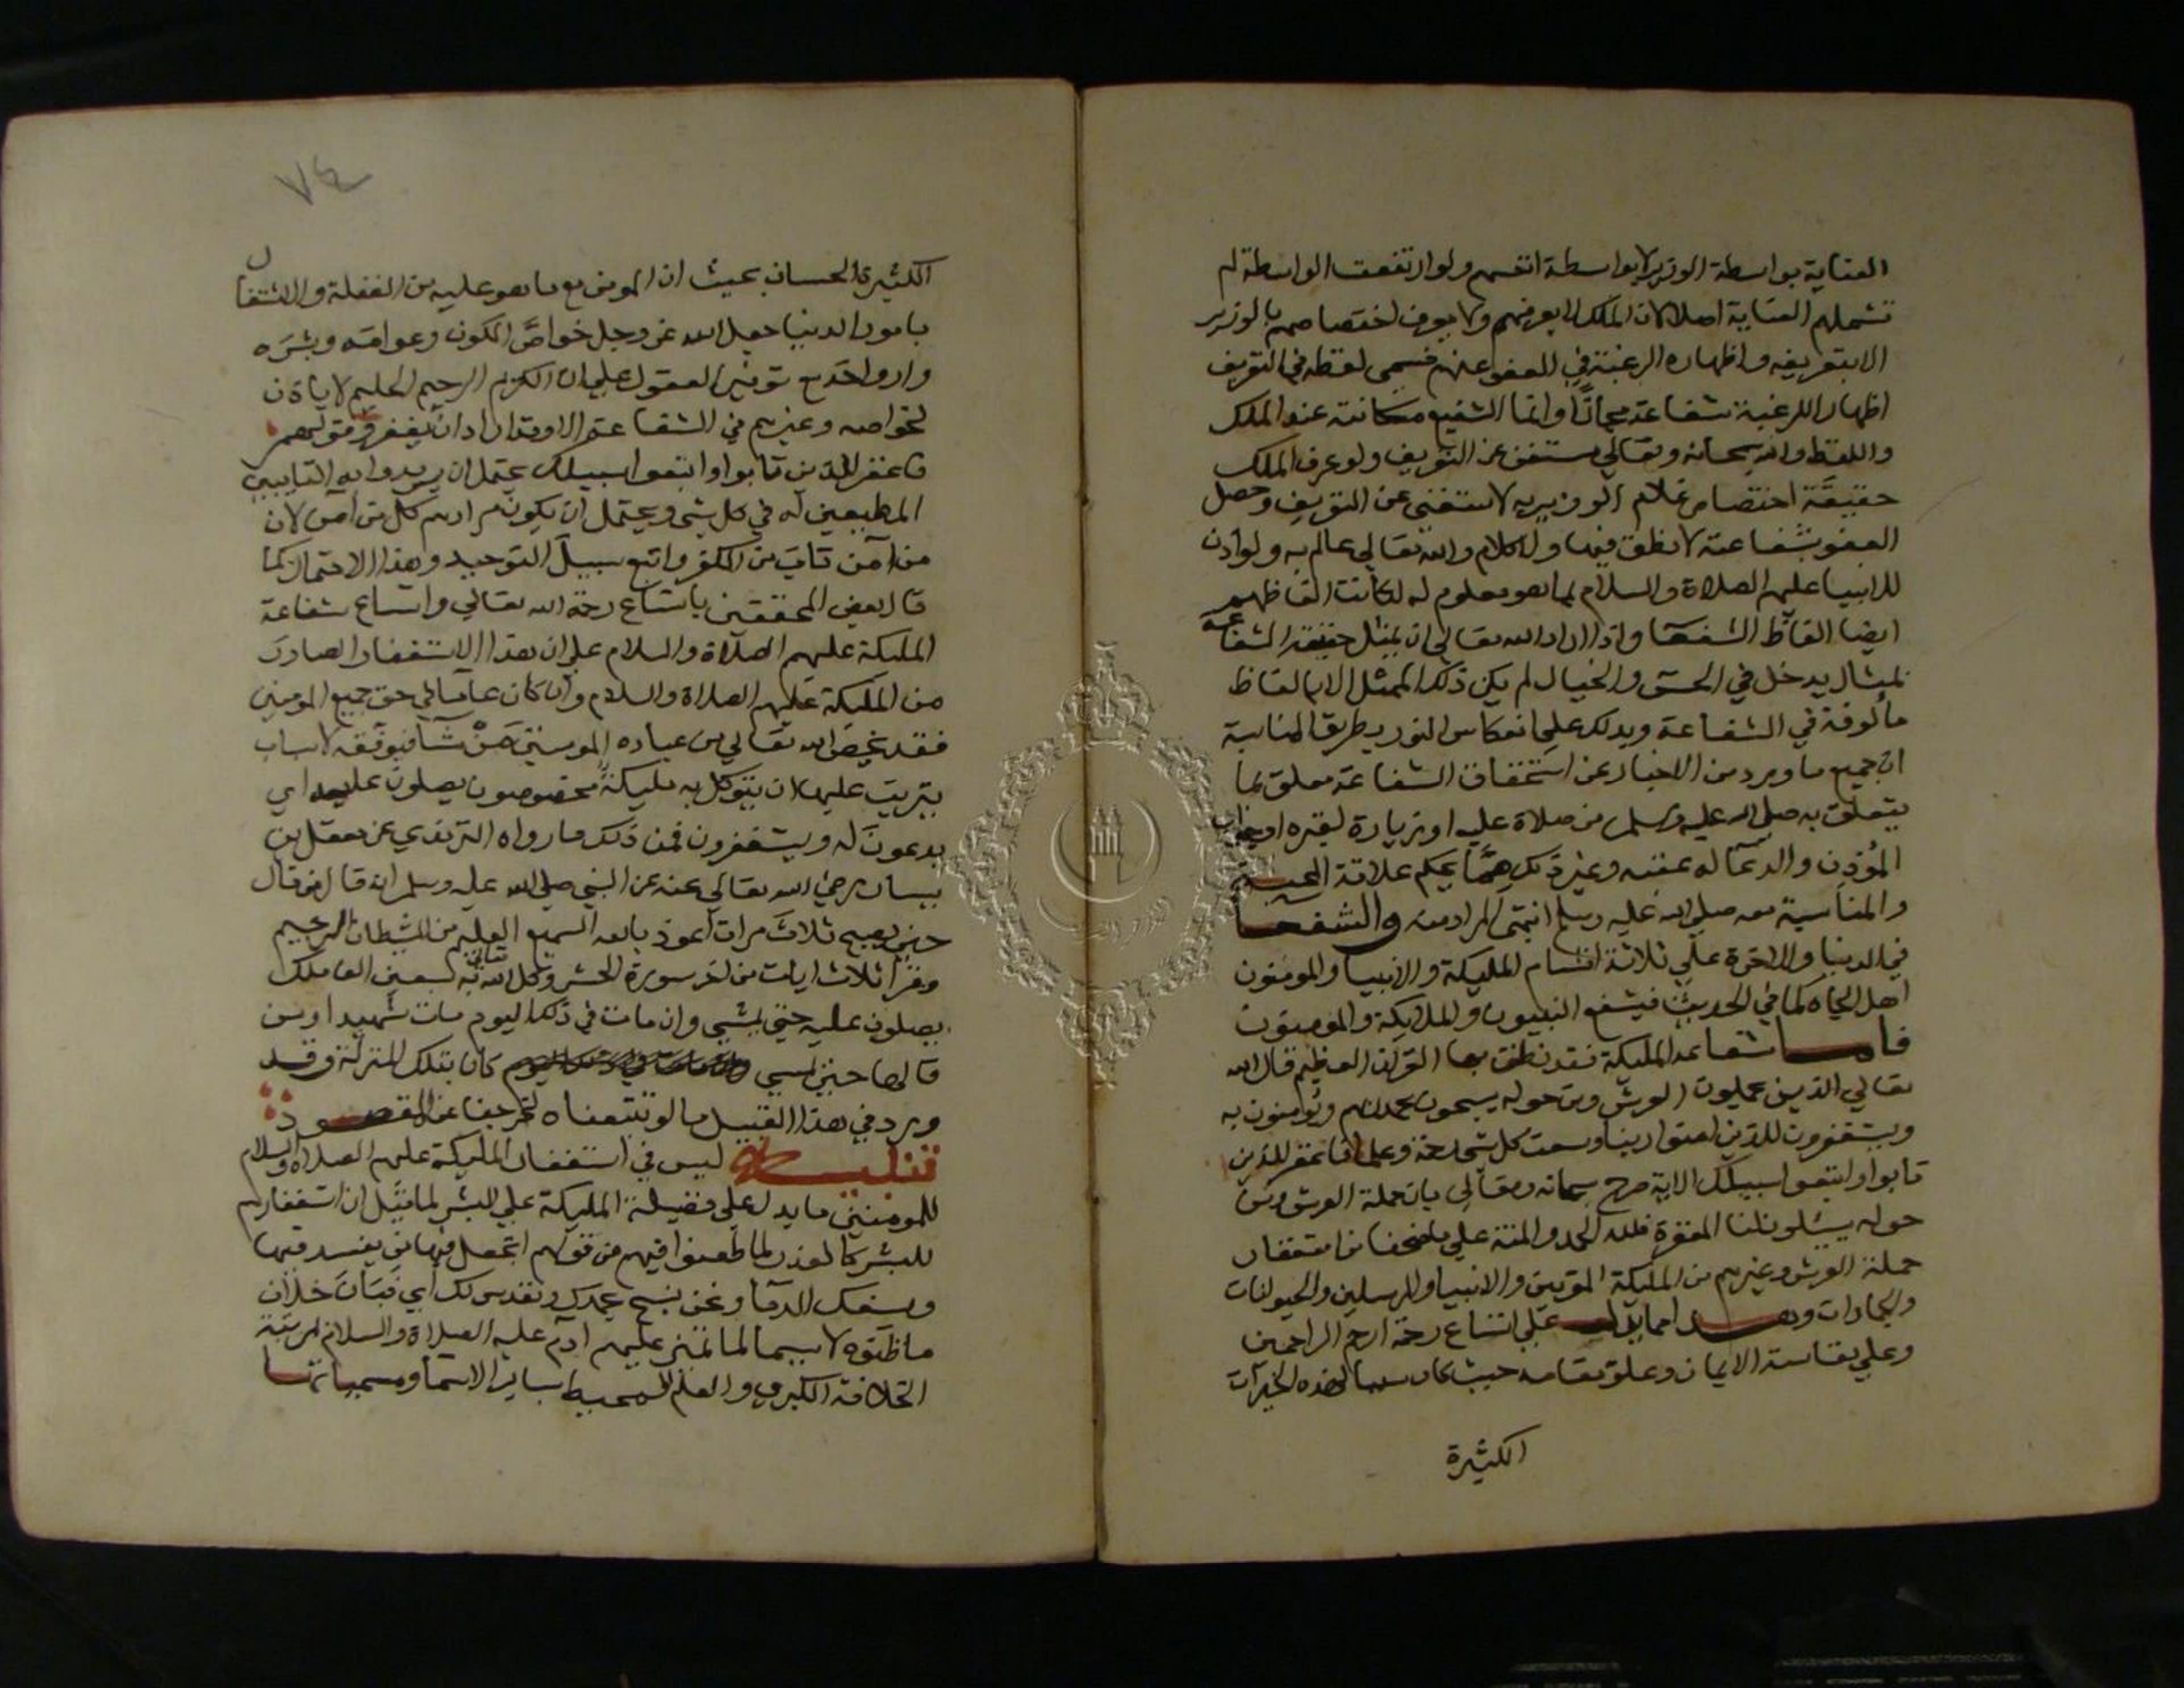 العناية بواسطة الوزير لا بواسطة انفسهم ولو ارتفعت الواسطة لم
تشملهم العناية اصلا لان الملك لا يعرفهم ولا يعرف اختصاصهم بالوزير
الا بتعريفه واظهاره الرغبة في العفو عنهم فسمى لفظه في التعريف
اظهار الرغبة شفاعة مجازًا وانما الشفيع مكانته عند الملك
واللفظ والله سبحانه وتعالي مستغن عن التعريف ولو عرف الملك
حقيقة اختصاص غلام الوزير به لاستغنى عن التعريف وحصل
العفو بشفاعة لا نطق فيها ولا كلام والله تعالي عالم به ولو اذن
للانبيا عليهم الصلاة والسلام بما هو معلوم له لكانت الفاظهم
ايضا الفاظ الشفعا واذا اراد الله تعالي ان يمثل حقيقة الشفاعة
بمثال يدخل في الحس والخيال لم يكن ذلك الممثل الا بالفاظ
مألوفة في الشفاعة ويدلك علي انعكاس النور بطريق المناسبة
ان جميع ما ورد من الاخبار عن استحقاق الشفاعة معلق بما
يتعلق به صلي الله عليه وسلم من صلاة عليه او زيارة لقبره او جواب
المؤذن والدعا له عقبه وغير ذلك مما يحكم علاقة المحبة
والمناسبة معه صلي الله عليه وسلم انتهى المراد منه والشفعا
في الدنيا والاخرة علي ثلاثة اقسام المليكة والانبيا والمومنون
اهل الجاه كما في الحديث فيشفع النبيون والملايكة والمومنون
فاما شفاعة المليكة فقد نطق بها القران العظيم قال الله
تعالي الذين يحملون العرش ومن حوله يسبحون بحمد ربهم ويؤمنون به
ويستغفرون للذين امنوا ربنا وسعت كل شي رحمة وعلما فاغفر للذين
تابوا واتبعوا سبيلك الاية صرح سبحانه وتعالي بان حملة العرش ومن
حوله يسئلون لنا المغفرة فلله الحمد والمنة علي ما منحنا من استغفار
حملة العرش وغيرهم من المليكة المقربين والانبيا والمرسلين والحيوانات
والجمادات وهذا مما يدل علي اتساع رحمة ارحم الراحمين
وعلي نفاسة الايمان وعلو مقامه حيث كان سببا لهذه الخيرات
الكثيرة
٧٤
الكثيرة الحسان بحيث ان المومن مع ما هو عليه من الغفلة والاشتغال
بامور الدنيا جعل الله عز وجل خواصَّ الكون وعوامَّه وبشره
لخواصه وغيرهم في الشفاعة الا وقد اراد ان يغفر وقولهم
فاغفر للذين تابوا واتبعوا سبيلك يحتمل ان يريدوا به التايبين
المطيعين له في كل شي ويحتمل ان يكون مرادهم كل من آمن لان
من آمن تاب من الكفر واتبع سبيل التوحيد وهذا الاحتمال كما
قال بعض المحققين باتساع رحمة الله تعالي واتساع شفاعة
المليكة عليهم الصلاة والسلام علي ان هذا الاستغفار الصادر
من المليكة عليهم الصلاة والسلام وان كان عاما في حق جميع المومنين
فقد يخص الله تعالي من عباده المومنين مَنْ شآ فيوفقه لاسباب
يترتب عليها ان يتوكل به مليكة مخصوصون يصلون عليه اي
يدعون له ويستغفرون فمن ذلك ما رواه الترمذي عن معقل بن
يسار رضي الله تعالي عنه عن النبي صلي الله عليه وسلم انه قال من قال
حين يصبح ثلاث مرات اعوذ بالله السميع العليم من الشيطان الرجيم
وقرأ ثلاث ايات من اخر سورة الحشر وكل الله تعالي به سبعين الف ملك
يصلون عليه حتي يمسي وان مات في ذلك اليوم مات شهيدا ومن
قالها حين يمسي كان بتلك المنزلة وقد
ورد في هذا القبيل ما لو تتبعناه لخرجنا عن المقصود
تنبيه ليس في استغفار المليكة عليهم الصلاة والسلام
للمومنين ما يدل علي فضيلة المليكة علي البشر لما قيل ان استغفارهم
للبشر كالعذر لما طعنوا فيهم من قولهم اتجعل فيها من يفسد فيها
ويسفك الدما ونحن نسبح بحمدك ونقدس لك اي فبان خلاف
ما ظنوه لا سيما لما تميز عليهم ادم عليه الصلاة والسلام بمرتبة
الخلافة الكبري والعلم المحيط بساير الاسما ومسمياتها